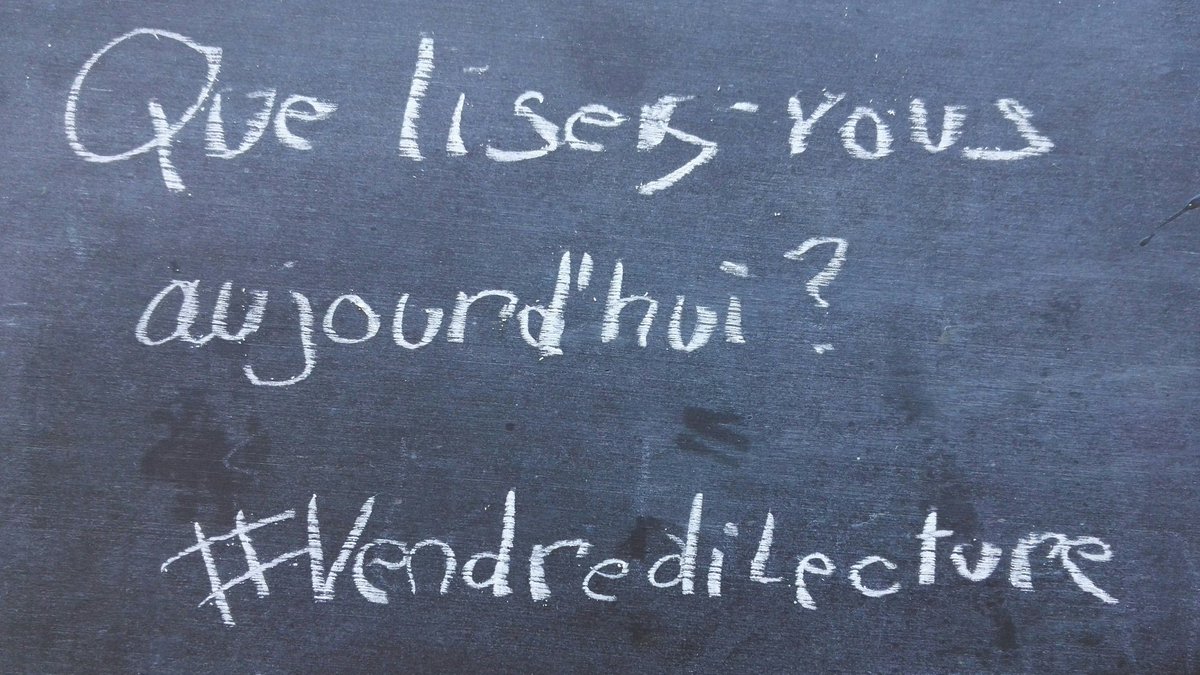 Que lisez-vous
aujourd'hui ?
#VendrediLecture